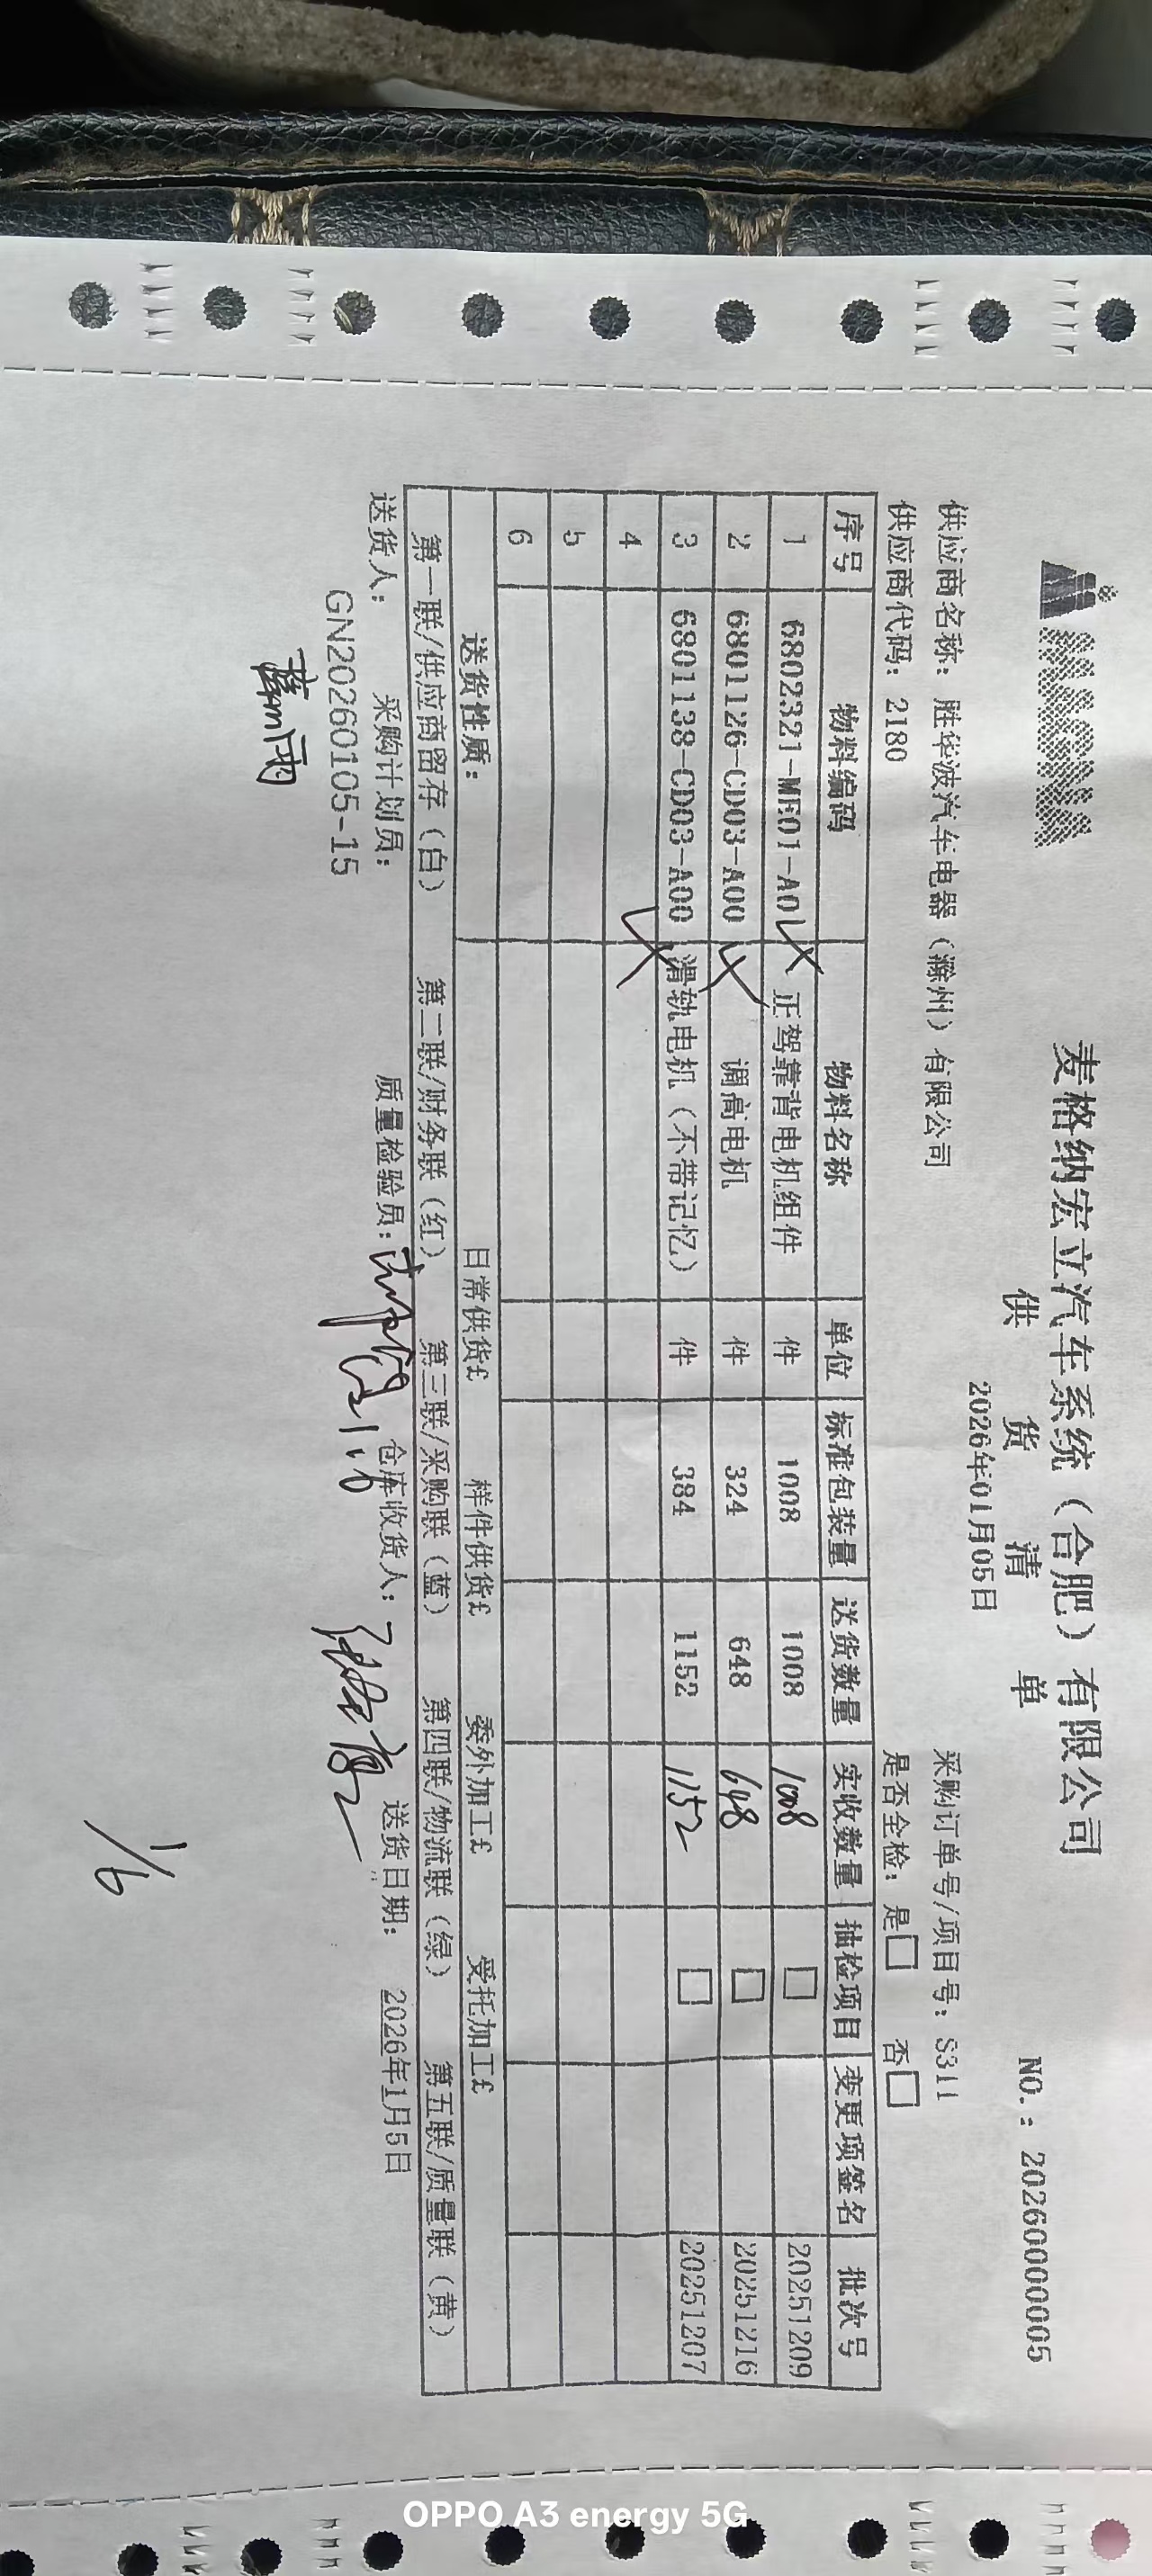 麦格纳宏立汽车系统（合肥）有限公司
供 货 清 单
NO.：20260000005
2026年01月05日
供应商名称：胜华波汽车电器（滁州）有限公司 采购订单号/项目号：S311
供应商代码：2180 是否全检：是□ 否□
序号 物料编码 物料名称 单位 标准包装量 送货数量 实收数量 抽检项目 变更项签名 批次号
1 6802321-ME01-A0 正驾靠背电机组件 件 1008 1008 1008 □ 20251209
2 6801126-CD03-A00 调高电机 件 324 648 648 □ 20251216
3 6801138-CD03-A00 滑轨电机（不带记忆） 件 384 1152 1152 □ 20251207
4
5
6
送货性质： 日常供货£ 样件供货£ 委外加工£ 受托加工£
第一联/供应商留存（白） 第二联/财务联（红） 第三联/采购联（蓝） 第四联/物流联（绿） 第五联/质量联（黄）
送货人： 采购计划员： 质量检验员： 仓库收货人： 送货日期： 2026年1月5日
GN20260105-15
1/6
OPPO A3 energy 5G